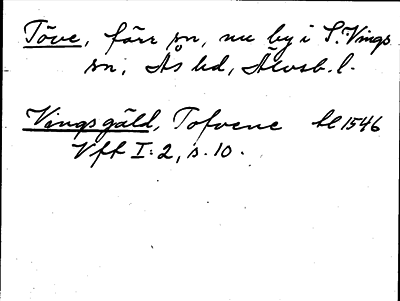 Töve, förr sn, nu by i S. Vings
sn, Ås hd, Älvsb. l.
Vingsgäld, Tofvene bl 1546
Vft I: 2, s. 10.